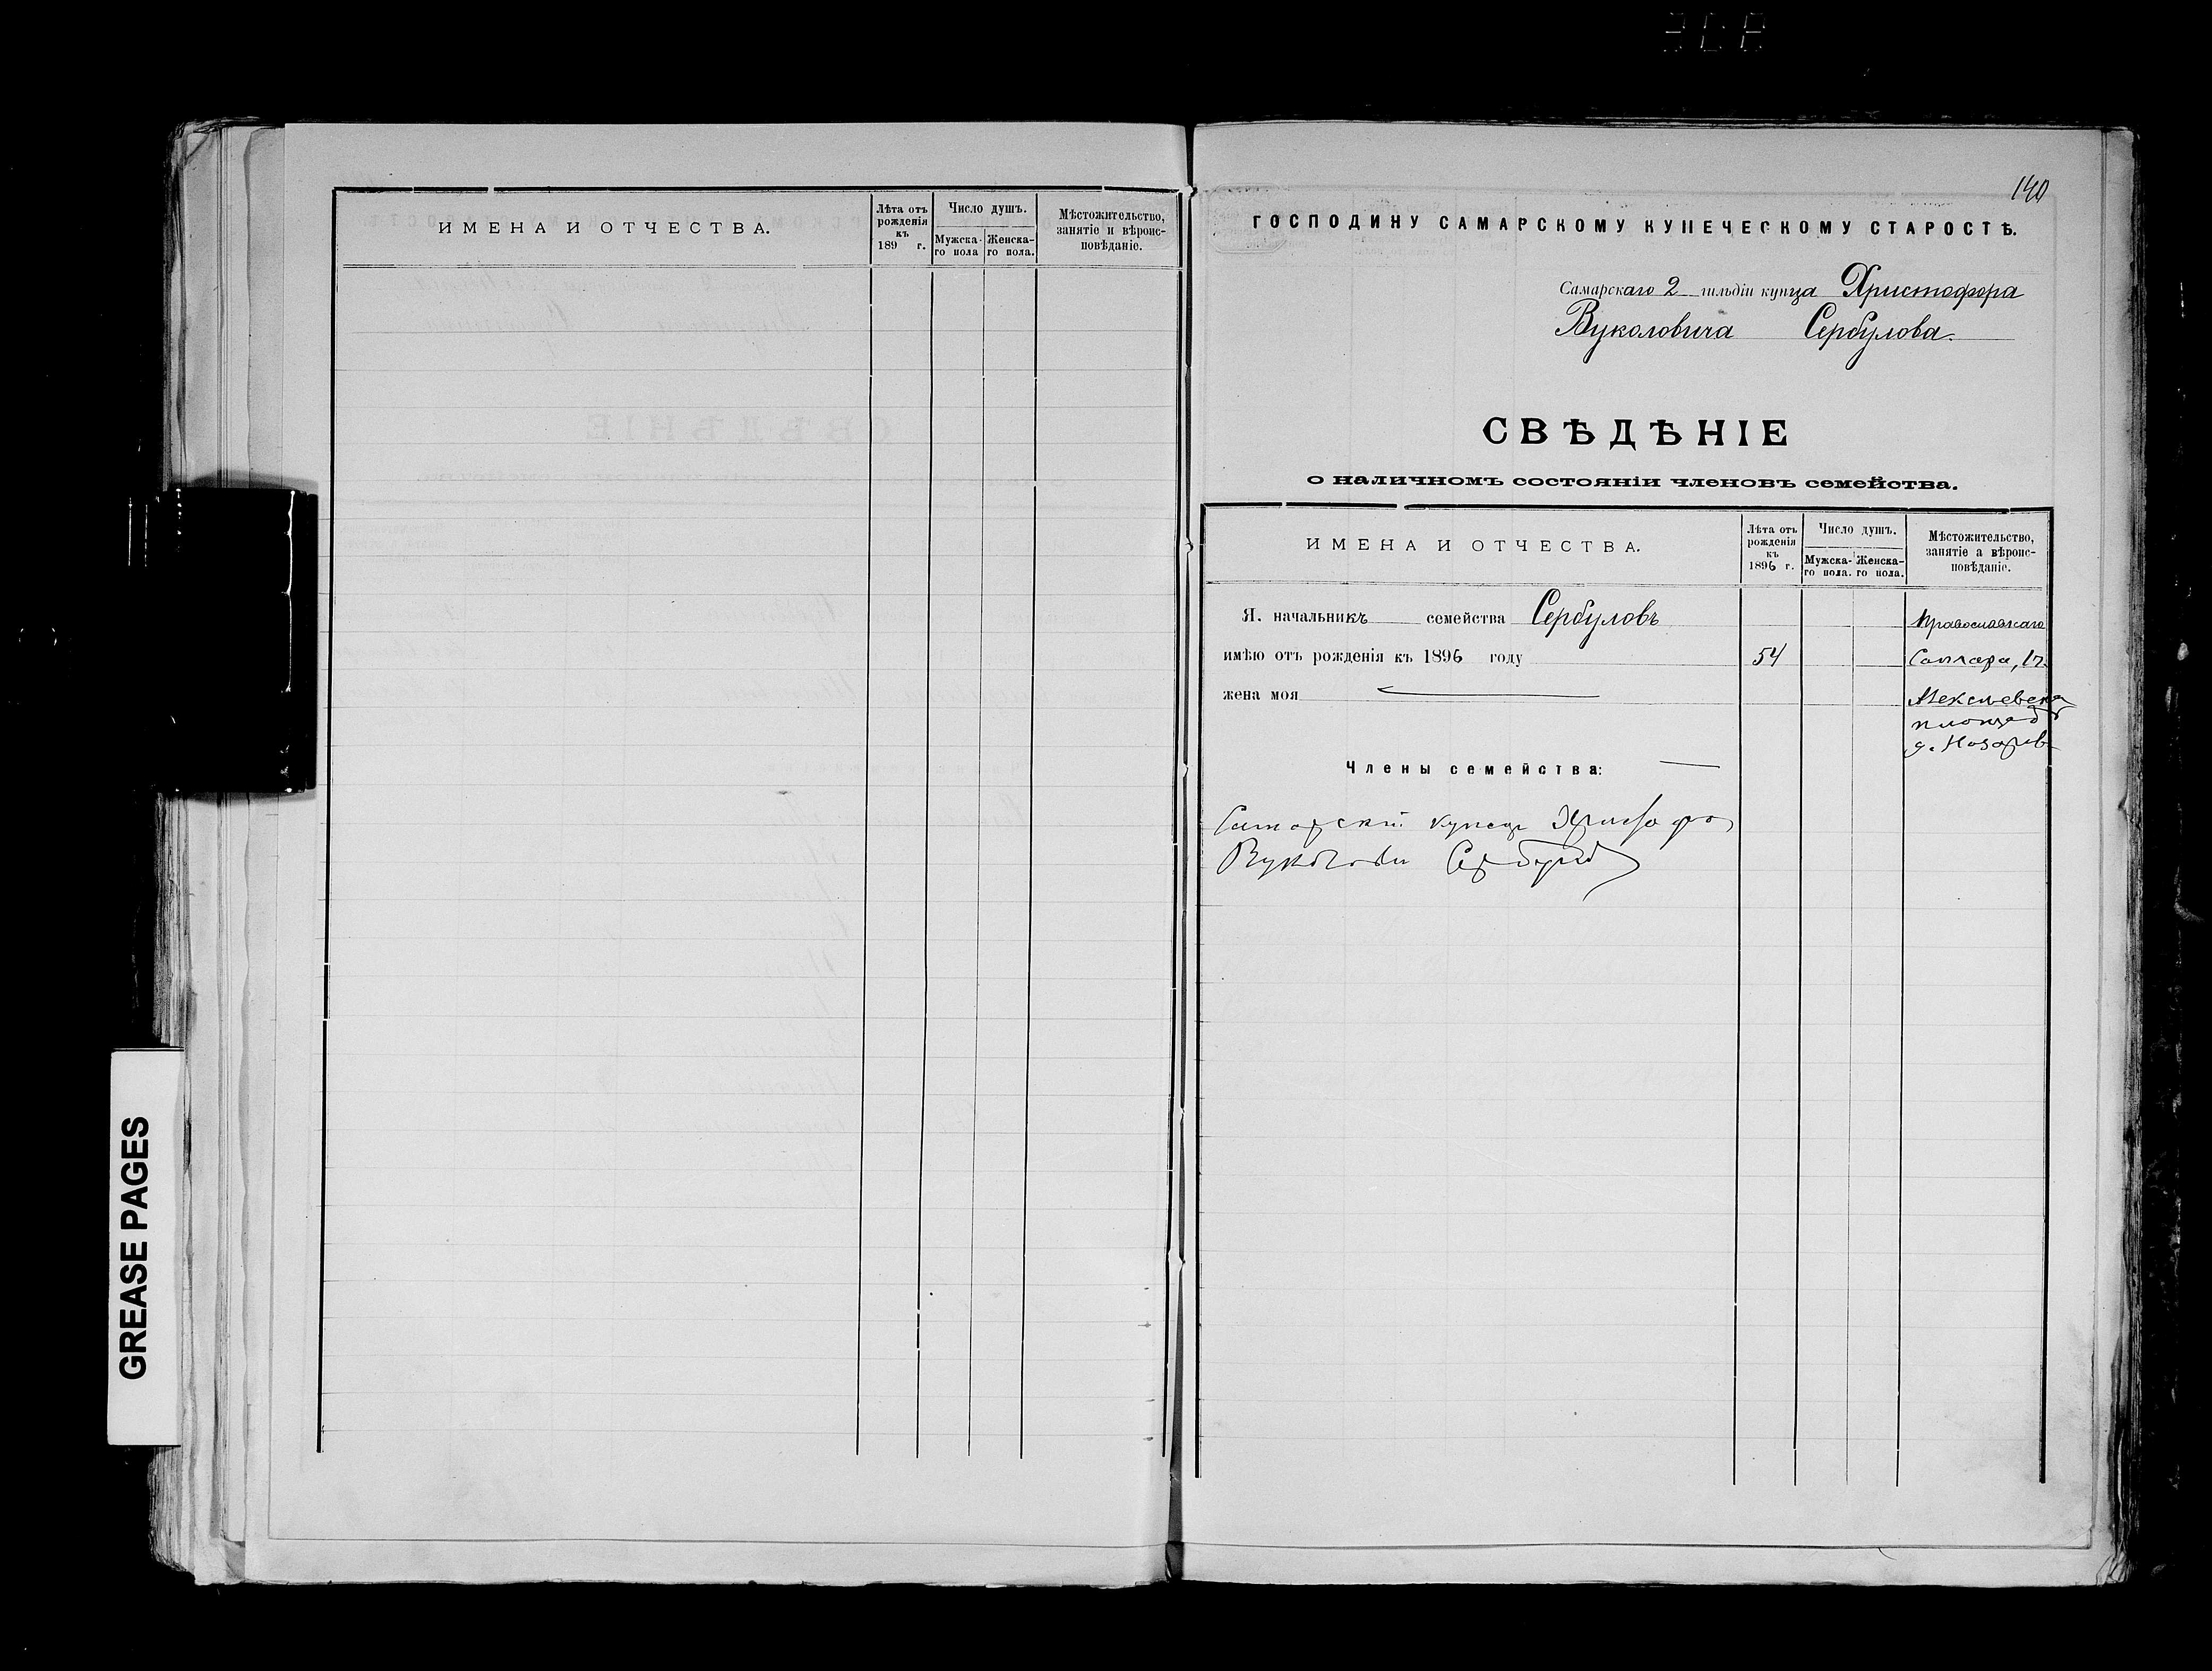 ИМЕНА И ОТЧЕСТВА.
Лѣта отъ рожденія къ 189 г.
Число душъ.
Мужска-го пола
Женска-го пола.
Мѣстожительство, занятіе и вѣроис-повѣданіе.
GREASE PAGES
140
ГОСПОДИНУ САМАРСКОМУ КУПЕЧЕСКОМУ СТАРОСТѢ.
Самарскаго 2 гильдіи купца Христофора
Вуколовича Сербулова.
СВѢДѢНІЕ
о наличномъ состояніи членовъ семейства.
ИМЕНА И ОТЧЕСТВА.
Лѣта отъ рожденія къ 1896 г.
Число душъ.
Мужска-го пола.
Женска-го пола.
Мѣстожительство, занятіе а вѣроис-повѣданіе.
Я. начальникъ семейства Сербуловъ Православнаго
имѣю отъ рожденія къ 1896 году 54 Самара,
жена моя
площадь
Члены семейства:
Самарский купец Христофор
Вуколович Сербулов